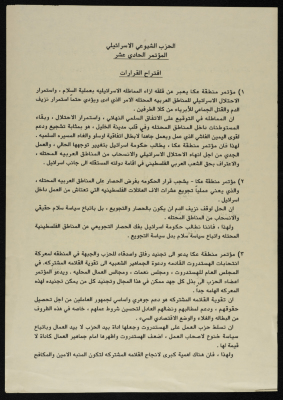 الحزب الشيوعي الاسرائيلي
المؤتمر الحادي عشر
اقتراح القرارات
١) مؤتمر منطقة عكا يعبر عن قلقه ازاء المماطله الاسرائيليه بعملية السلام ، واستمرار
الاحتلال الاسرائيلي للمناطق العربيه المحتله الامر الذي ادى ويؤدي حتماً استمرار نزيف
الدم والقتل الجماعي للأبرياء من كلا الطرفين .
ان المماطله في التوقيع على الاتفاق السلمي النهائي ، واستمرار الاحتلال ، وبقاء
المستوطنات داخل المناطق المحتله وفي قلب مدينة الخليل ، هو بمثابة تشجيع ودعم
لقوى اليمين الفاشي الذي عمل ويعمل جاهداً لابطال اتفاقية اوسلو والغاء المسيره السلميه .
لهذا فان مؤتمر منطقة عكا ، يطالب حكومة اسرائيل بتغيير توجهها الحالي ، والعمل
الجدي من اجل انهاء الاحتلال الاسرائيلي والانسحاب من المناطق العربيه المحتله ،
والاعتراف بحق الشعب العربي الفلسطيني في اقامة دولته المستقله الى جانب اسرائيل .
٢) مؤتمر منطقة عكا - يشجب قرار الحكومه بفرض الحصار على المناطق العربيه المحتله ،
والذي يعني عملياً تجويع عشرات الاف العائلات الفلسطينيه التي تعتاش من العمل داخل
اسرائيل .
ان الحل لوقف نزيف الدم لن يكون بالحصار والتجويع ، بل باتباع سياسة سلام حقيقي
والانسحاب من المناطق المحتله .
ولهذا ، فاننا نطالب حكومة اسرائيل بفك الحصار التجويعي عن المناطق الفلسطينية
المحتله واتباع سياسة سلام بدل سياسة التجويع .
٣) مؤتمر منطقة عكا يدعو الى تجنيد رفاق واصدقاء للحزب والجبهة في المنطقه لمعركة
انتخابات الهستدروت القادمه ودعوة الجماهير الشعبيه الى تقوية القائمه المشتركه، في
المجلس العام للهستدروت ، ومجلس نعمات ، ومجالس العمال المحليه . ويدعو المؤتمر
اعضاء الحزب الى بذل كل جهد ممكن في هذا المجال وتجنيد كل من يمكن تجنيده لهذه
المعركه الهامه جداً .
ان تقوية القائمه المشتركه هو دعم جوهري واساسي لجمهور العاملين من اجل تحصيل
حقوقهم ، ودعم لمطالبهم ونضالهم العادل لتحسين شروط عملهم ، خاصه في هذه الظروف
من البطاله والغلاء والوضع الاقتصادي السيء .
ان تسلط حزب العمل على الهستدروت وجعلها اداة بيد الحزب لا بيد العمال وباتباع
سياسة خنوع لاصحاب العمل ، اضعف الهستدروت واظهرها امام جماهير العمال كاداة لا
قيمة لها .
ولهذا ، فان هناك اهمية كبرى لانجاح القائمه المشتركه لتكون المنبه الامين والمكافح